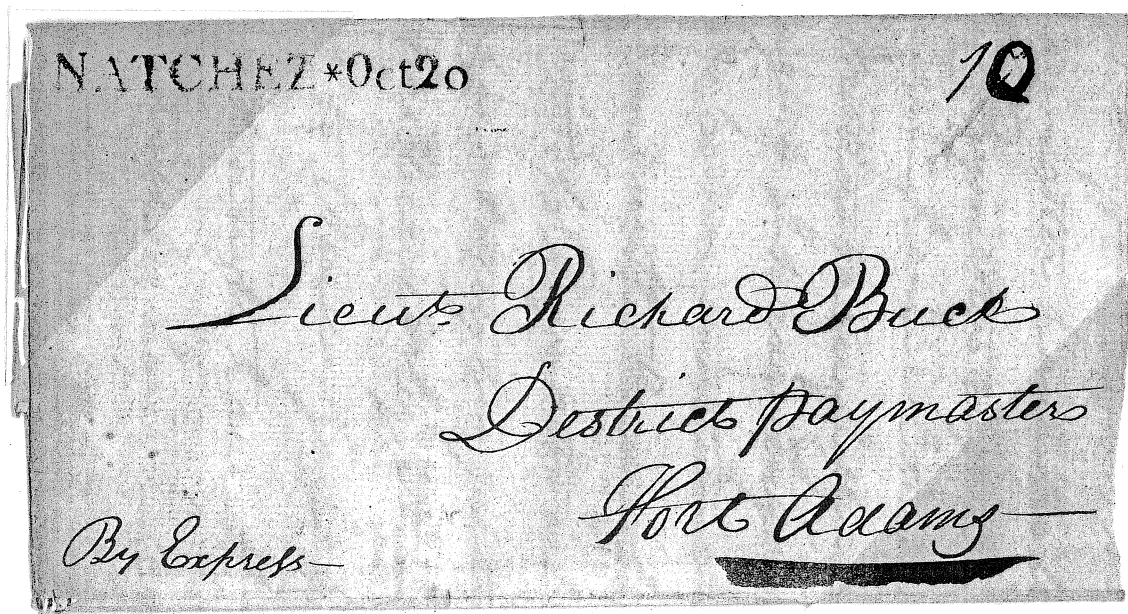 NATCHEZ*Oct20
10
Lieut. Richard Buck
District paymaster
Fort Adams —
By Express —